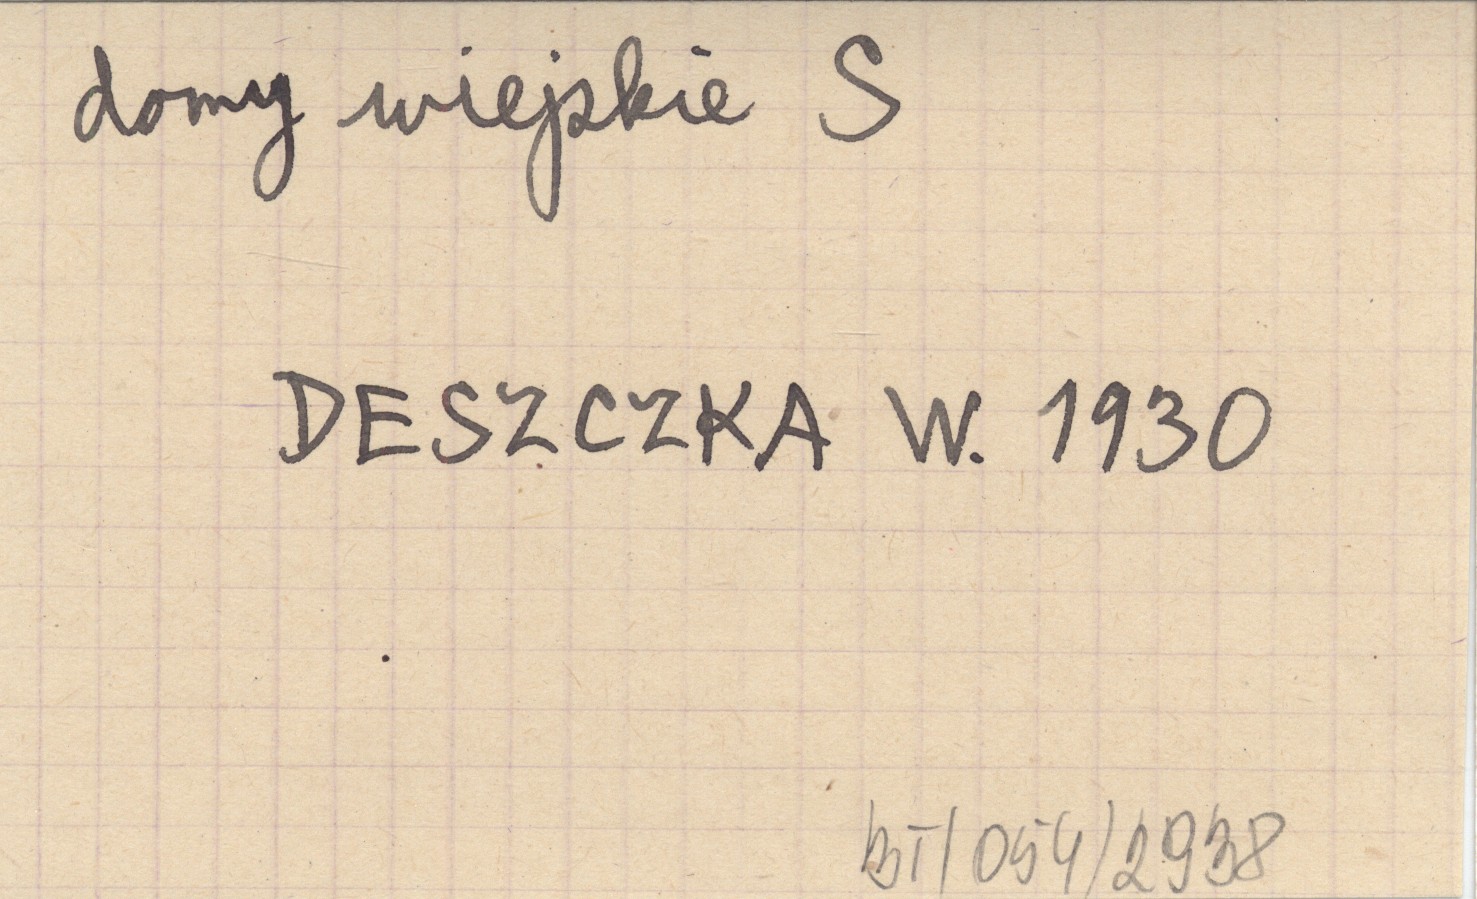 domy wiejskie S
DESZCZKA W. 1930
BT/054/2938